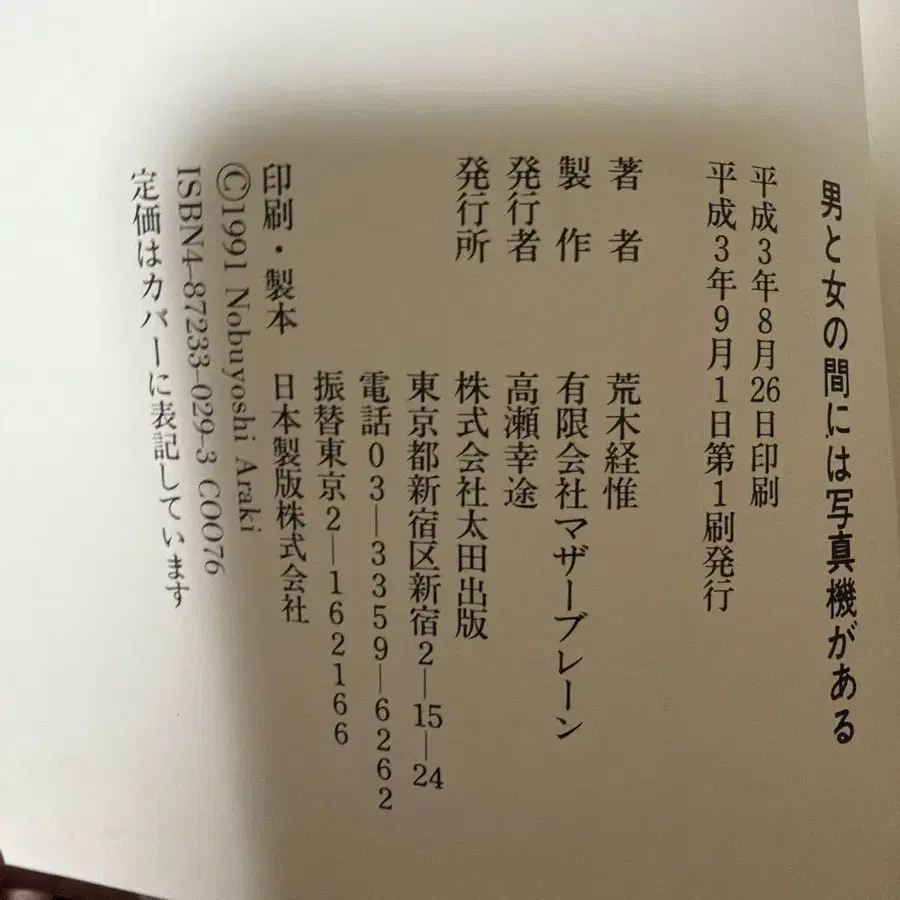 男と女の間には写真機がある
平成3年8月26日印刷
平成3年9月1日第1刷発行
著者 荒木経惟
製作 有限会社マザーブレーン
発行者 高瀬幸途
発行所 株式会社太田出版
東京都新宿区新宿2―15―24
電話03―3359―6262
振替東京2―162166
印刷・製本 日本製版株式会社
©1991 Nobuyoshi Araki
ISBN4-87233-029-3 COO76
定価はカバーに表記しています